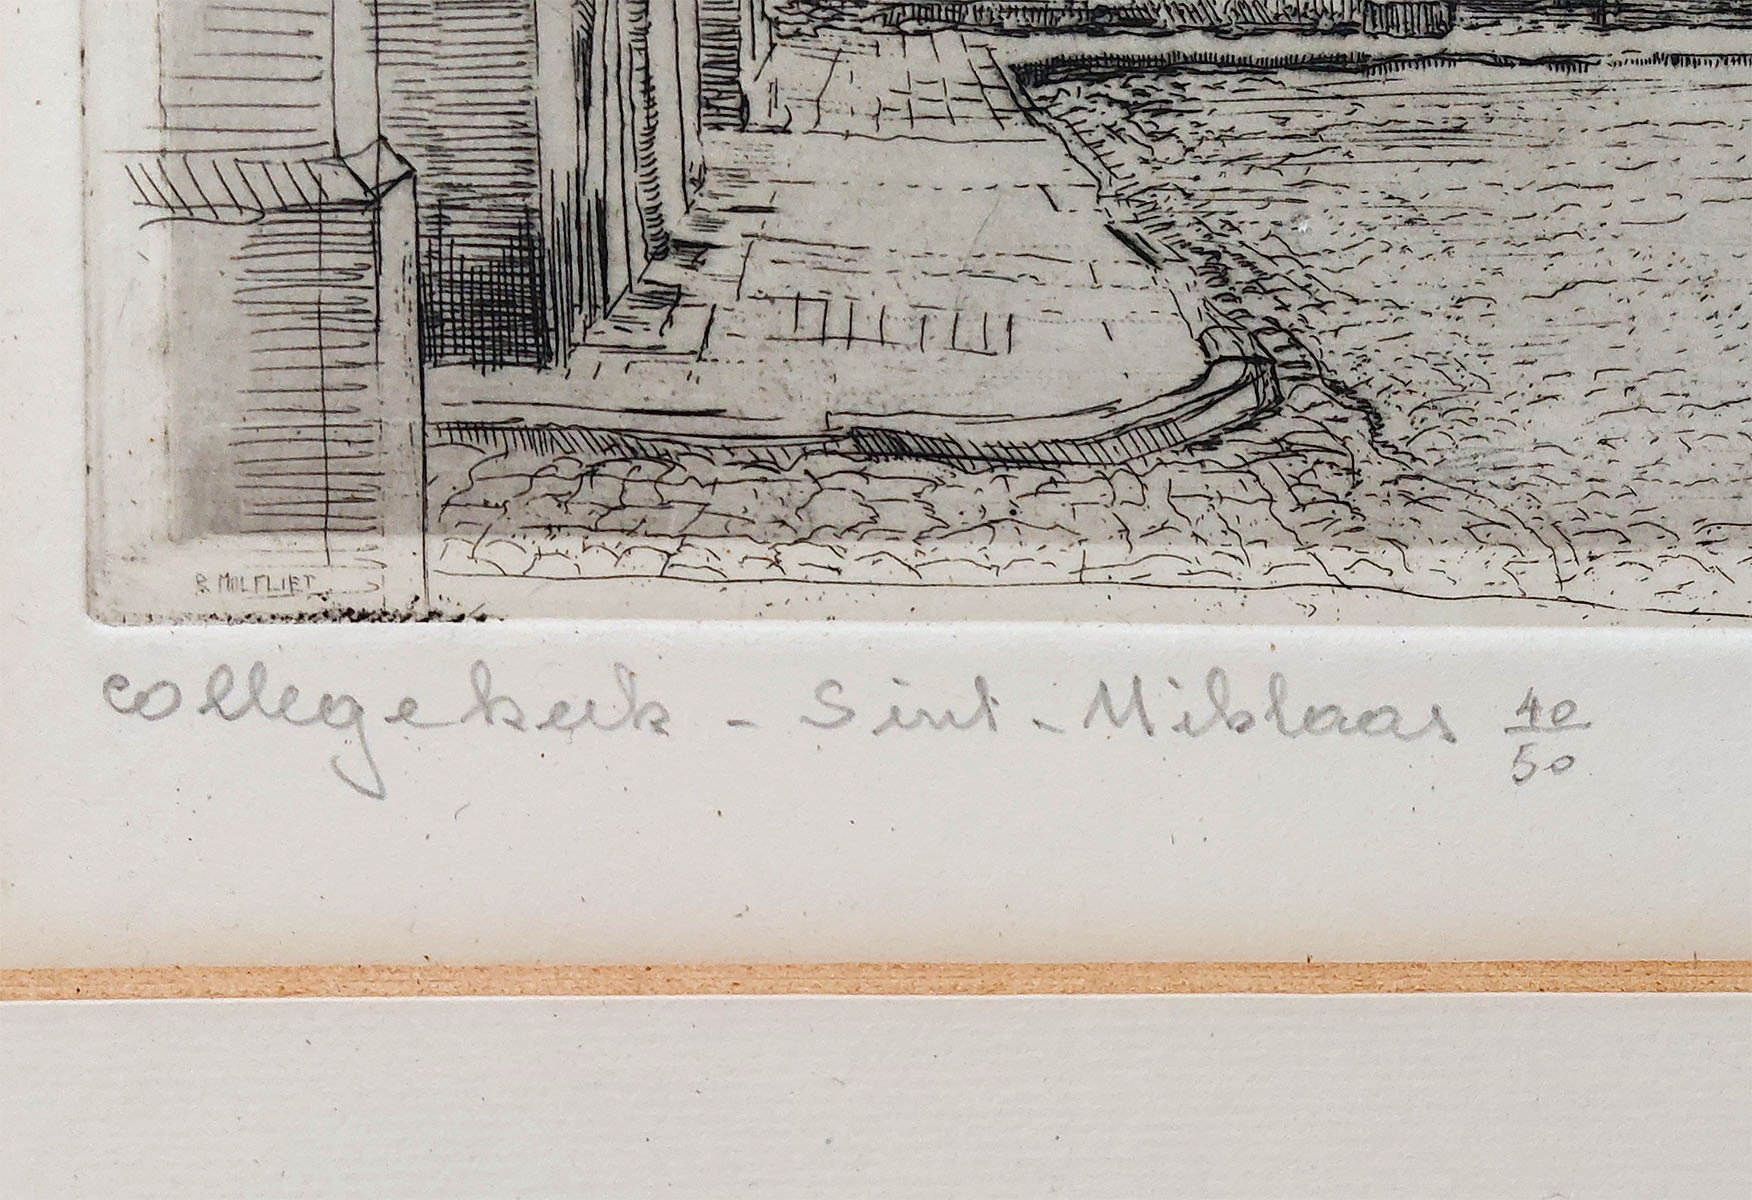 R. MILFLIET
collegekerk - Sint-Niklaas 40/50